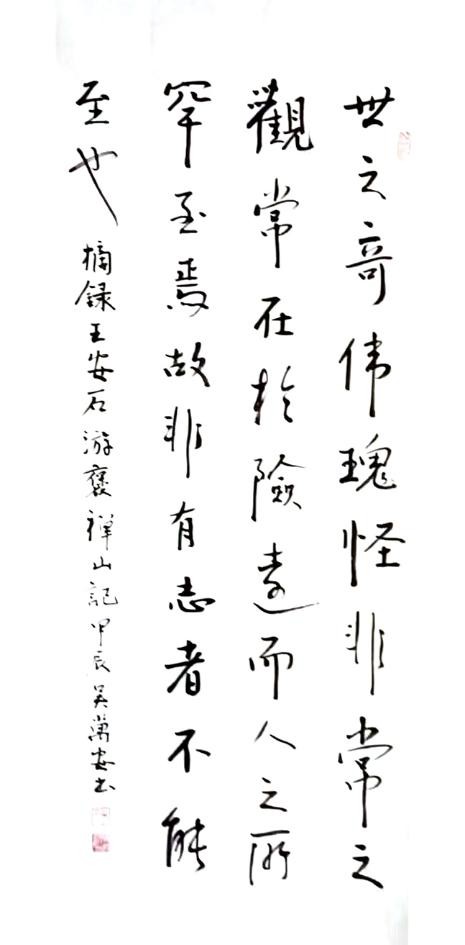 世之奇伟瑰怪非常之
觀常在於險遠而人之所
罕至焉故非有志者不能
至也
摘録王安石游褒禅山記甲辰吴萬安书